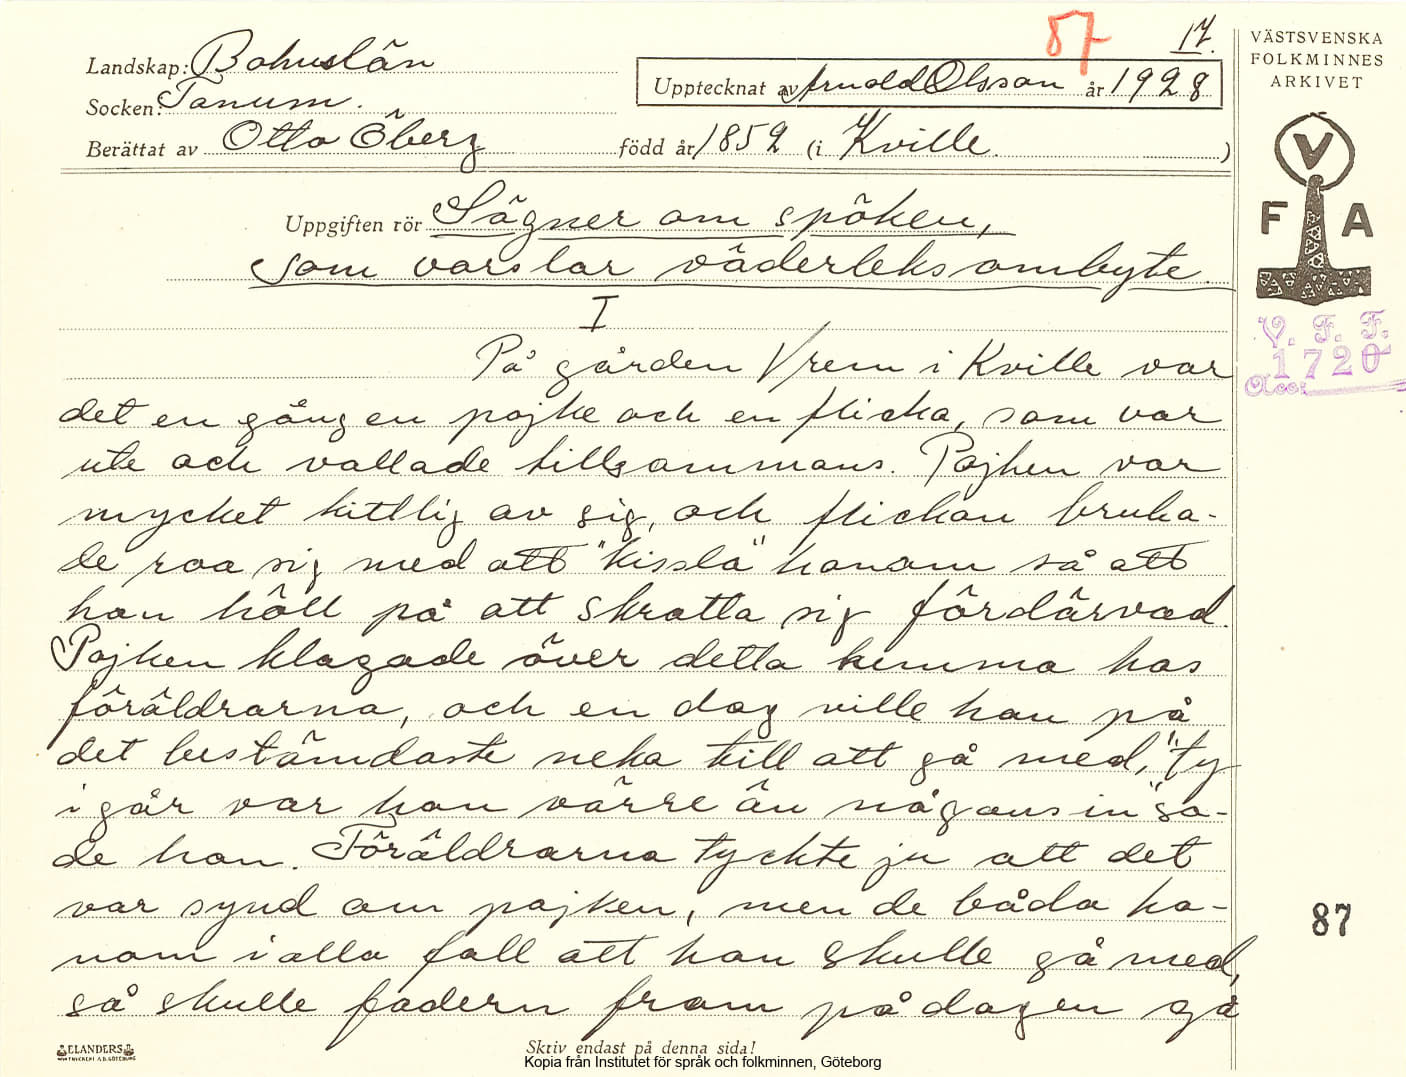 87
17.
Landskap: Bohuslän
Socken: Tanum.
Upptecknat av Arnold Olsson år 1928
Berättat av Otto Öberg född år 1852 (i Kville )
Uppgiften rör Sägner om spöken,
som varslar väderleksombyte.
I
På gården Vrem i Kville var
det en gång en pojke och en flicka, som var
ute och vallade tillsammans. Pojken var
mycket kittlig av sig, och flickan bruka-
de roa sig med att "kissla" honom så att
han höll på att skratta sig fördärvad.
Pojken klagade över detta hemma hos
föräldrarna, och en dag ville han på
det bestämdaste neka till att gå med, "ty
i går var hon värre än någonsin" sa-
de han. Föräldrarna tyckte ju att det
var synd om pojken, men de båda ho-
nom i alla fall att han skulle gå med,
så skulle fadern fram på dagen gå
VÄSTSVENSKA
FOLKMINNES
ARKIVET
V
F A
V. F. F.
1720
Acc:
87
ELANDERS
Skriv endast på denna sida!
Kopia från Institutet för språk och folkminnen, Göteborg